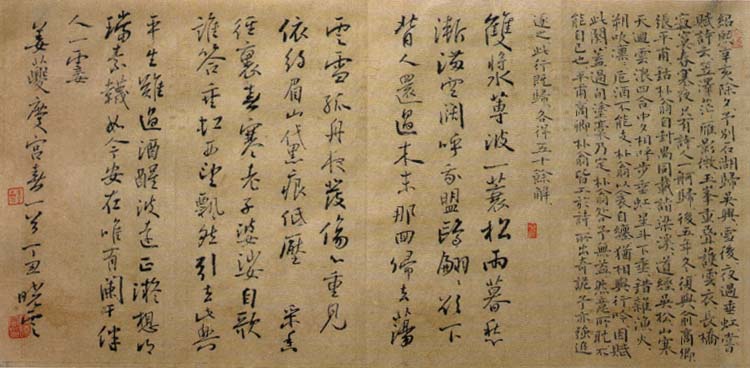 紹熙辛亥除夕予別石湖歸吳興雪後夜過垂虹嘗
賦詩云笠澤茫茫雁影微玉峯重疊護雲衣長橋
寂寞春寒夜只有詩人一舸歸後五年冬復與俞商卿
張平甫銛朴翁自封禺同載詣梁溪道經吳松山寒
天迥雲浪四合中夕相呼步垂虹星斗下垂錯雜漁火
朔吹凜凜卮酒不能支朴翁以衾自纏猶相與行吟因賦
此闋蓋過旬塗藁乃定朴翁咎予無益然意所耽不
能自已也平甫商卿朴翁皆工於詩所出奇詭予亦強追
逐之此行既歸各得五十餘解
雙槳蓴波一蓑松雨暮愁
漸滿空闊呼我盟鷗翩翩欲下
背人還過木末那回歸去蕩
雲雪孤舟夜發傷心重見
依約眉山黛痕低壓 采香
徑裏春寒老子婆娑自歌
誰答垂虹西望飄然引去此興
平生難遏酒醒波遠正凝想明
璫素襪如今安在唯有闌干伴
人一霎
姜夔慶宮春一首丁丑曉雲